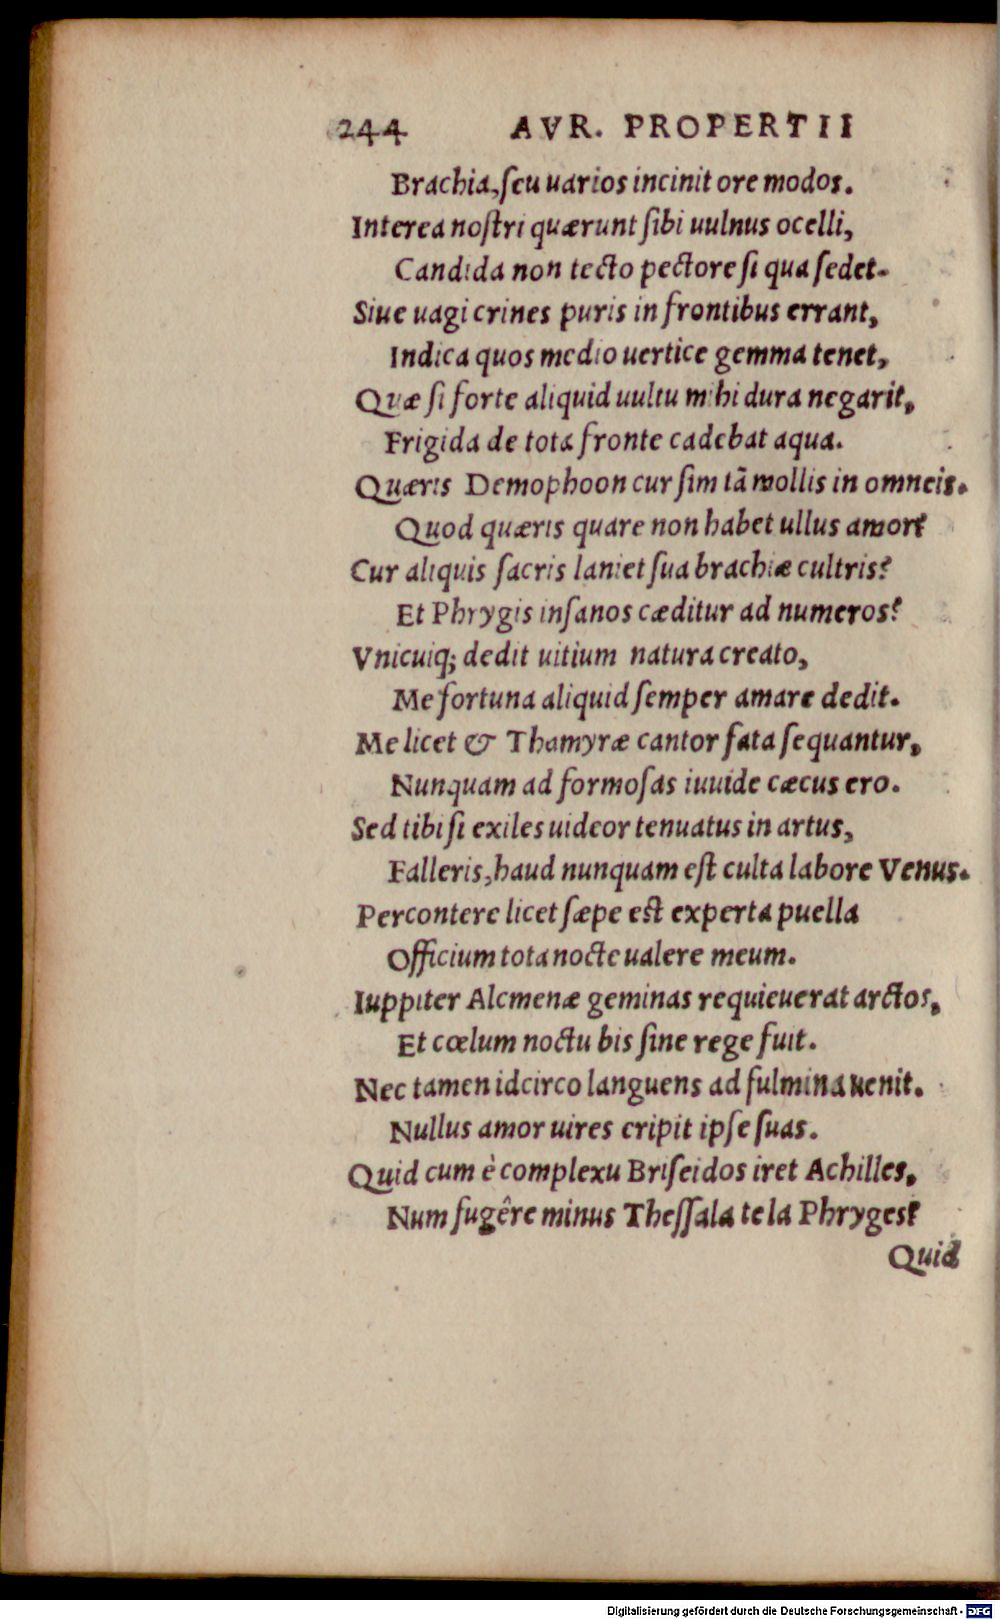 244 AVR. PROPERTII
Brachia, ſeu uarios incinit ore modos.
Interea noſtri quærunt ſibi uulnus ocelli,
Candida non tecto pectore ſi qua ſedet.
Siue uagi crines puris in frontibus errant,
Indica quos medio uertice gemma tenet,
Quæ ſi forte aliquid uultu mihi dura negarit,
Frigida de tota fronte cadebat aqua.
Quæris Demophoon cur ſim tã mollis in omneis.
Quod quæris quare non habet ullus amor?
Cur aliquis ſacris laniet ſua brachiæ cultris?
Et Phrygis inſanos cæditur ad numeros?
Vnicuiq; dedit uitium natura creato,
Me fortuna aliquid ſemper amare dedit.
Me licet & Thamyræ cantor fata ſequantur,
Nunquam ad formoſas iuuide cæcus ero.
Sed tibi ſi exiles uideor tenuatus in artus,
Falleris, haud nunquam eſt culta labore Venus.
Percontere licet ſæpe eſt experta puella
Officium tota nocte ualere meum.
Iuppiter Alcmenæ geminas requieuerat arctos,
Et cœlum noctu bis ſine rege fuit.
Nec tamen idcirco languens ad fulmina uenit.
Nullus amor uires eripit ipſe ſuas.
Quid cum è complexu Briſeidos iret Achilles,
Num fugêre minus Theſſala tela Phryges?
Quid
Digitalisierung gefördert durch die Deutsche Forschungsgemeinschaft - DFG